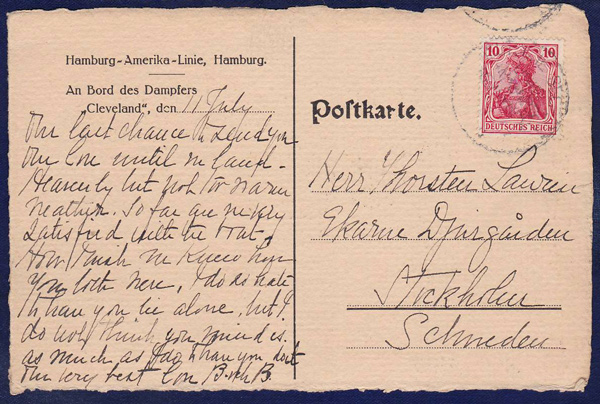 Hamburg-Amerika-Linie, Hamburg.
An Bord des Dampfers
„Cleveland", den 11 July
Our last chance to send you
Our love until we land.
Heavenly but not too warm
weather. So far are very
satisfied with the boat.
How much we
You both here, I do so hate
have you be alone, but I
do not think you mind it
as much as I do
Our very best love
Postkarte.
Herr Thorsten Laurin
Ekarne Djurgården
Stockholm
Schweden
10 10
DEUTSCHES REICH